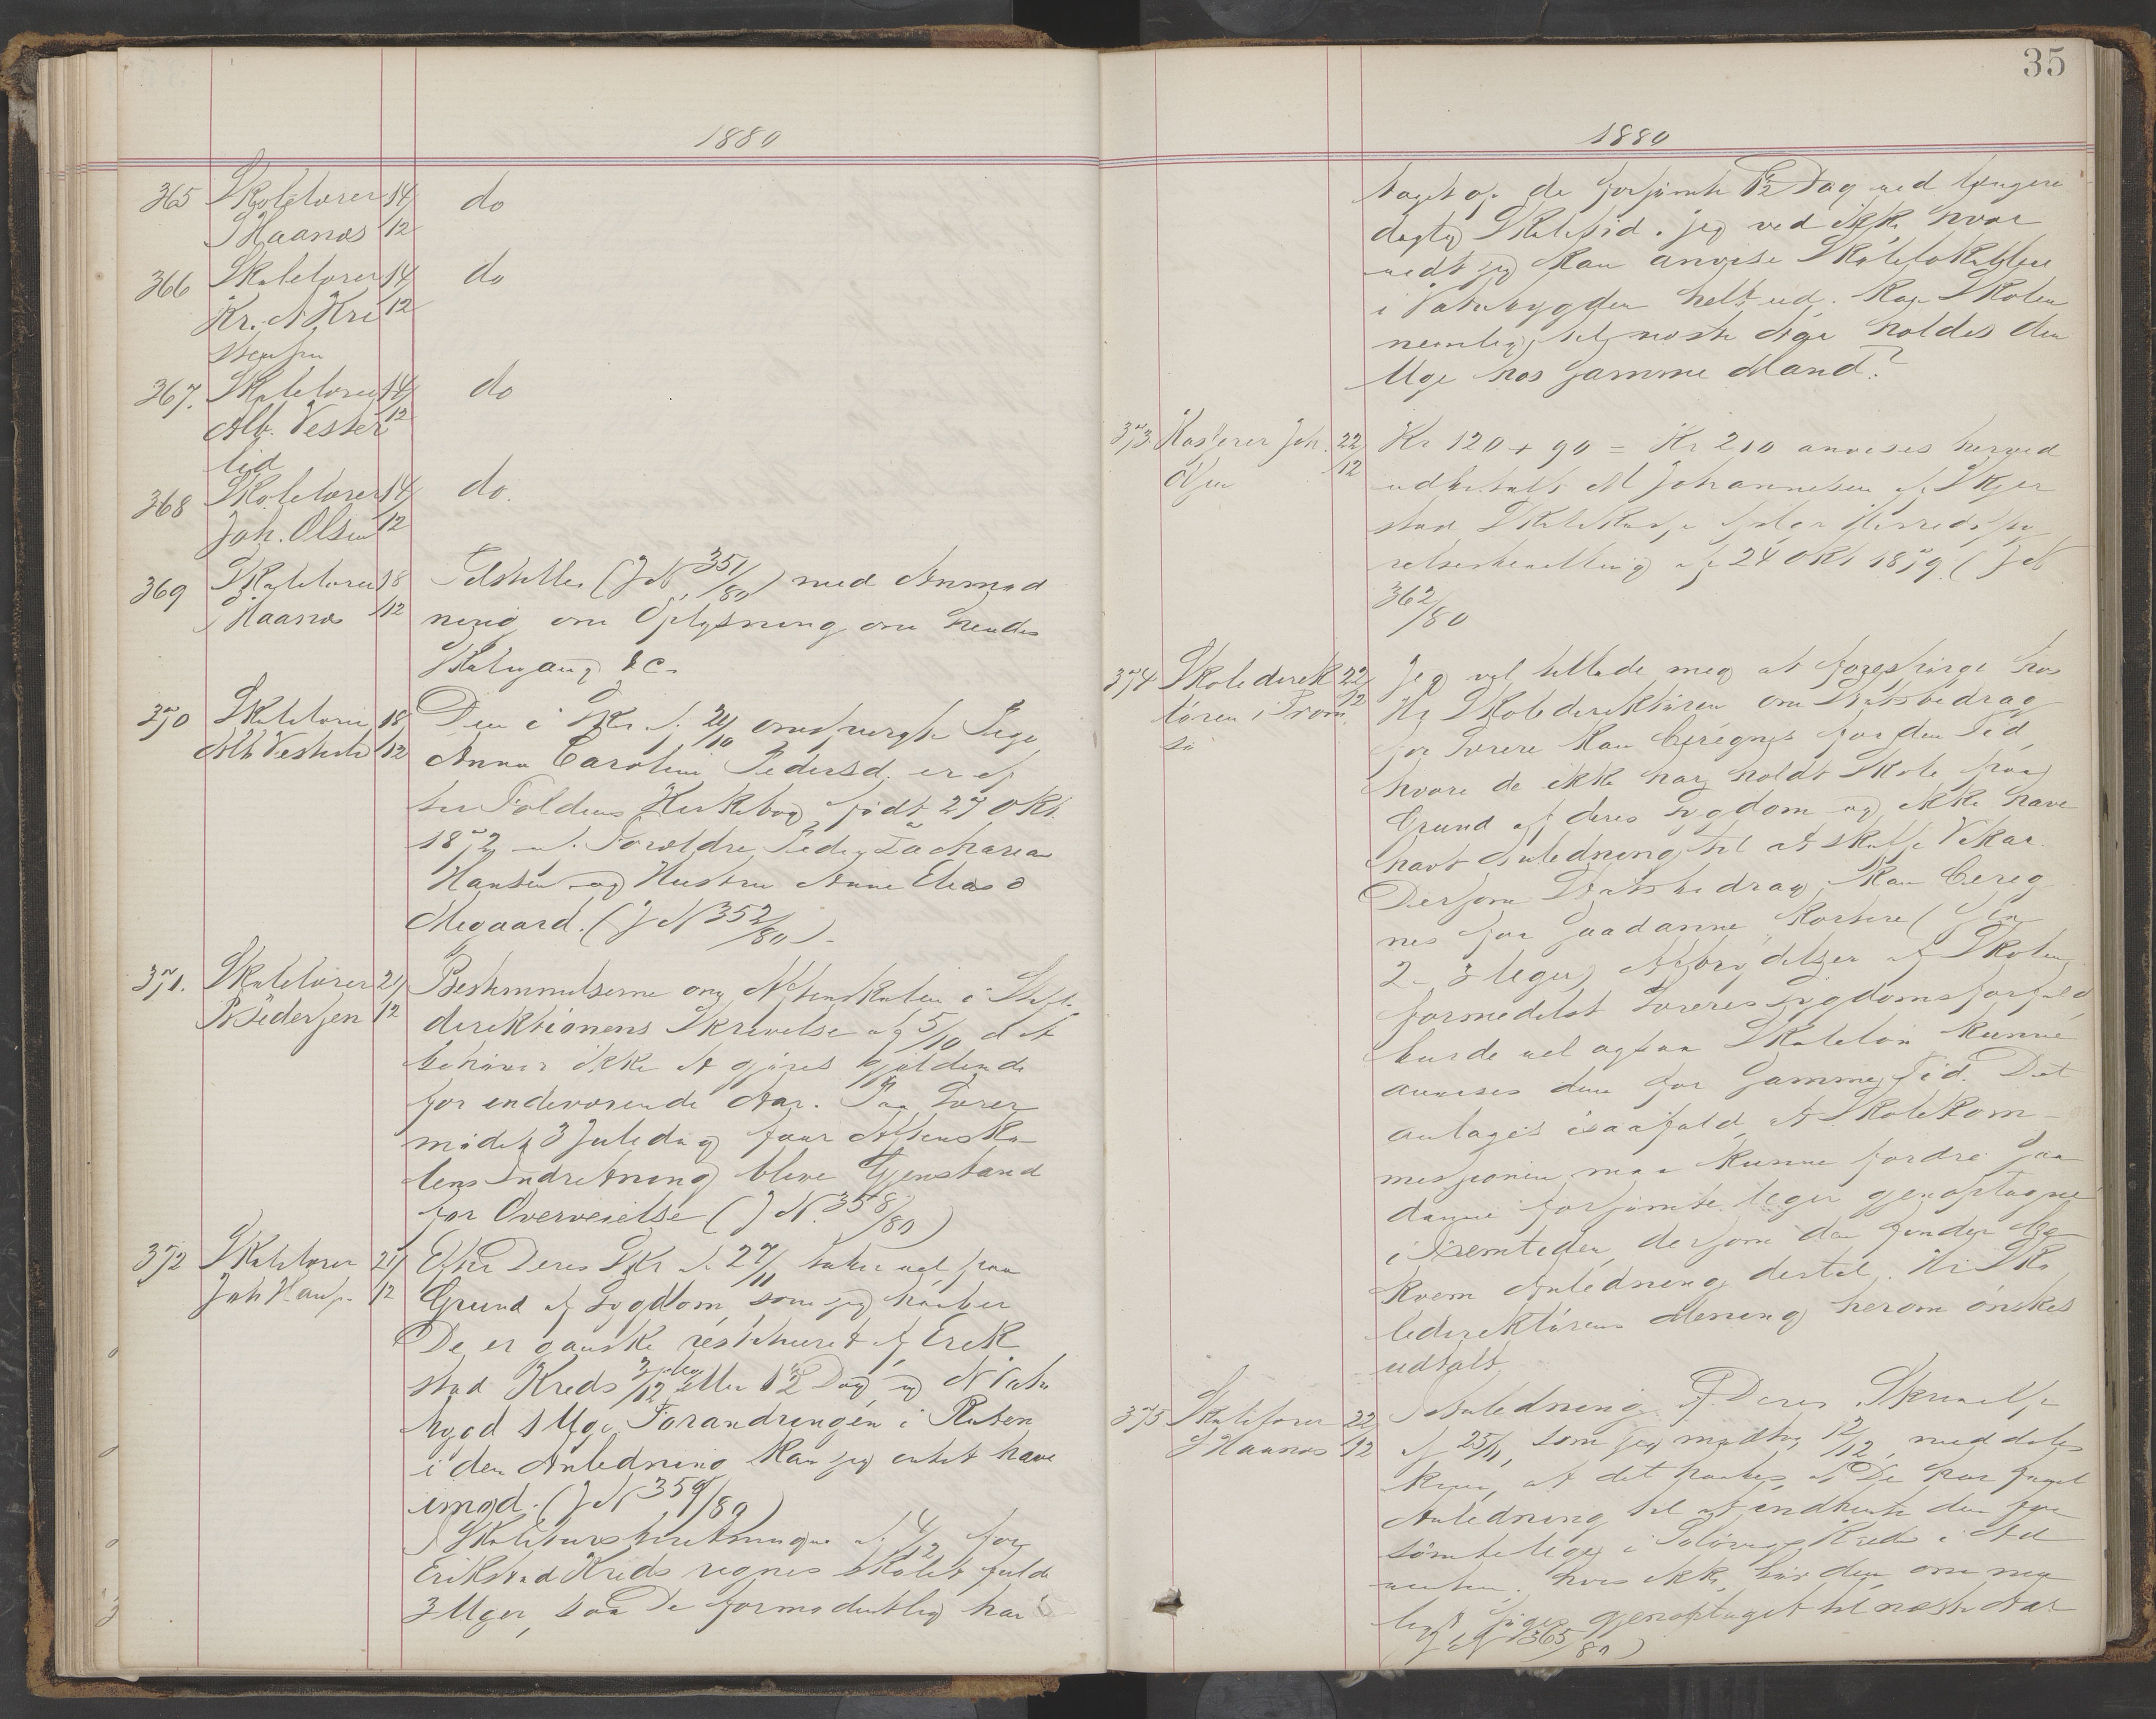 1880
365 Skolelærer 14/12 do
J Haanæs
366 Skolelærer 14/12 do
Kr. A Kri
stensen
367. Skolelærer 14/12 do
Alb. Vester
lid
368 Skolelærer 14/12 do.
Joh. Olsen
369 Skolelærer 18/12 Tilstilles (J N 351/80) med Anmod
J Haanæs ning om Oplysning om hendes
Skolegang &c.
370 Skolelærer 18/12 Den i Skr. af 24/10 omspurgte Pige
Alb Vesterli Anna Caroline Pedersd. er ef
ter Foldens Kirkebog født 27 Okt.
1872 af Forældre Peder Zacharias
Hansen og Hustru Anne Elias d
Megaard. (J N 352/80)-
371. Skolelærer 21/12 Bestemmelserne om Aftenskolen i Stifts
P Pedersen direktionens Skrivelse af 5/10 d A
behøver ikke at gjøres gjeldende
for indeværende Aar. Paa Lærer
mødet 3 Juledag faar Aftensko-
lens Indretning blive Gjenstand
for Overveielse (J N. 358/80)
372 Skolelærer 21/12 Efter Deres Skr af 27/11 taber vel paa
Joh Hans. Grund af Sygdom, som jeg haaber
De er ganske restitueret af Erik
stad Kreds 3/12 eller 12 Dag, og N Vatn
bygd 1 Uge. Forandringen i Ruten
i den Anledning kan jeg intet have
imod. (J N 359/80)
I Skolelærerberetningen af 4/12 for
Erikstad Kreds regnes Skolet fulde
3 Uger, saa De formodentlig har
35
1880
taget op de forsømte 12 Dag ved længere
daglig Skoletid. Jeg ved ikke hvor
vidt jeg kan anvise Skolelokalerne
i Vatnbygden helt ud. Kan Skolen
nemlig til næste Aar holdes den
Uge hos samme Mand?
373 Kasserer Joh. 22/12 Kr 120 + 90 = Kr 210 anvises herved
udbetalt M Johannesen af Skjer
stad Skolekasse ifølge Herredssty
relsesbevilling af 24 Okt 1879. (J N
362/80
374 Skoledirek 22/12 Jeg vil tillade mig at forespørge hos
tøren i Trom Hr Skoledirektøren om Statsbidrag
sø for Lærere kan beregnes for den Tid,
hvori de ikke har holdt Skole paa
Grund af deres Sygdom og ikke have
havt Anledning til at skaffe Vikar.
Dersom Statsbidrag kan bereg
nes for saadanne kortere (f Ex
2-3 Uger) Afbrydelser af Skolen
formedelst Læreres Sygdomsforfald,
burde vel ogsaa Skoleløn kunne
anvises dem for samme Tid. Det
antages isaafald, at Skolekom-
missionen maa kunne fordre saa
danne forsømte Uger gjenoptagne
i Fremtiden, dersom der findes be
kvem Anledning dertil. Hr Sko
ledirektørens Mening herom ønskes
udtalt
375 Skolelærer 22/12 I Anledning af Deres Skrivelse
J Haanæs af 25/11, som jeg modtog 12/12, meddeles
at det haabes, at De har faaet
Anledning til at indhente den for
sømte Uge i Kreds i Ad
venten. Hvis ikke, bør den om mu
ligt søges gjenoptaget til næste Aar
(J N 365/80)